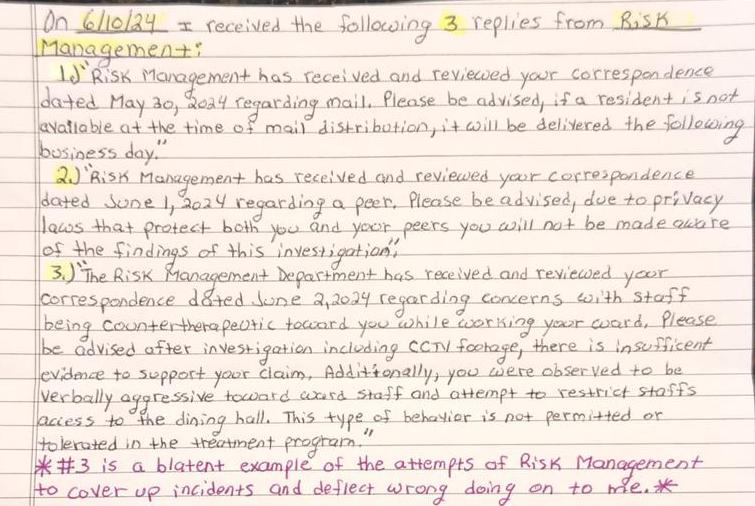 On 6/10/24 I received the following 3 replies from Risk
Management:
1.) "Risk Management has received and reviewed your correspondence
dated May 30, 2024 regarding mail. Please be advised, if a resident is not
available at the time of mail distribution, it will be delivered the following
business day."
2.) "Risk Management has received and reviewed your correspondence
dated June 1, 2024 regarding a peer. Please be advised, due to privacy
laws that protect both you and your peers you will not be made aware
of the findings of this investigation",
3.) "The Risk Management Department has received and reviewed your
correspondence dated June 2, 2024 regarding concerns with staff
being countertherapeutic toward you while working your ward. Please
be advised after investigation including CCTV footage, there is insufficent
evidence to support your claim. Additionally, you were observed to be
verbally aggressive toward ward staff and attempt to restrict staffs
access to the dining hall. This type of behavior is not permitted or
tolerated in the treatment program."
*#3 is a blatent example of the attempts of Risk Management
to cover up incidents and deflect wrong doing on to me.*